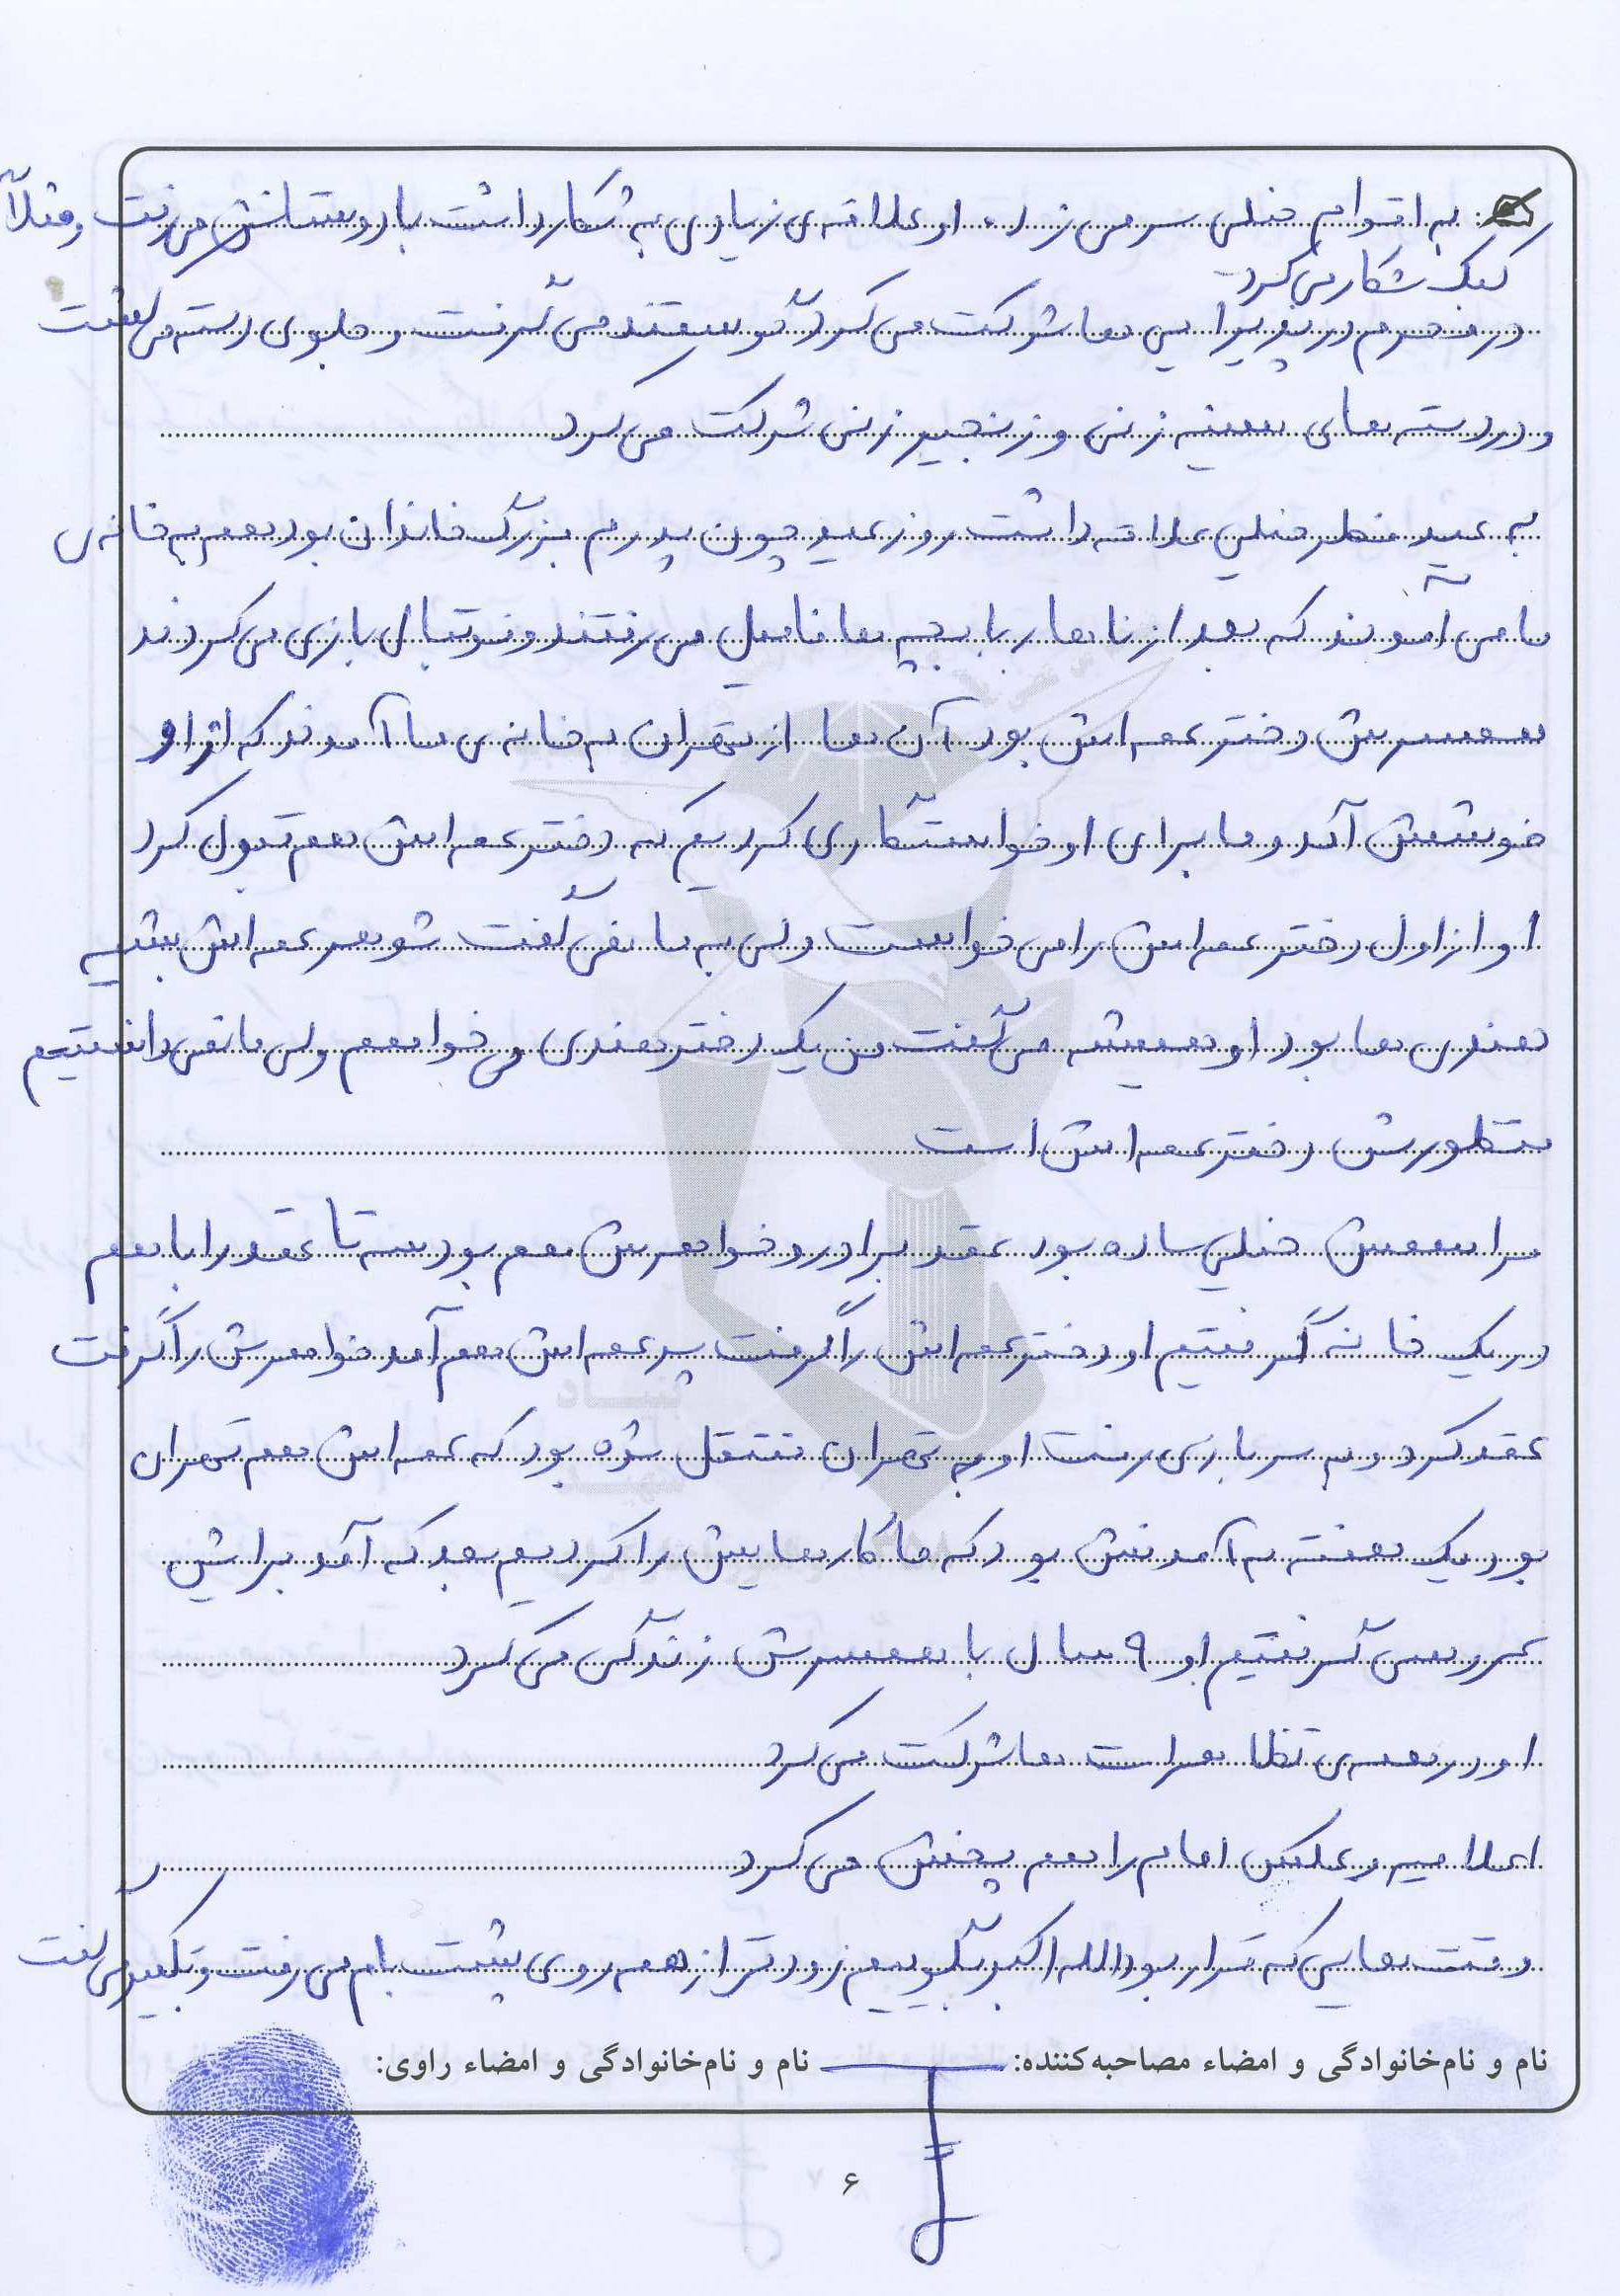 به اقوام خیلی سر می زد. او علاقه ی زیادی به شکار داشت با دوستانش می رفت و مثلاً
کبک شکار می کرد
در محرم در پذیرایی ها شرکت می کرد گوسفند می گرفت و جلوی دسته می کشت
و در دسته های سینه زنی و زنجیر زنی شرکت می کرد
به عید فطر خیلی علاقه داشت روز عید چون پدرم بزرگ خاندان بود همه به خانه ی
ما می آمدند که بعد از ناهار با بچه ها فامیل می رفتند و فوتبال بازی می کردند
همسرش دختر عمه اش بود آن ها از تهران به خانه ی ما آمدند که از او
خوشش آمد و ما برای او خواستگاری کردیم که دختر عمه اش هم قبول کرد
او از اول دختر عمه اش را می خواست ولی به ما نمی گفت شوهر عمه اش شبیه
هندی ها بود او همیشه می گفت من یک دختر هندی می خواهم ولی ما نمی دانستیم
منظورش دختر عمه اش است
مراسمش خیلی ساده بود عقد برادر و خواهرش هم بود سه تا عقد را با هم
در یک خانه گرفتیم او دختر عمه اش را گرفت پسر عمه اش هم آمد خواهرش را گرفت
عقد کرد و به سربازی رفت او به تهران منتقل شده بود که عمه اش هم تهران
بود یک هفته به آمدنش بود که ما کارهایش را کردیم بعد که آمد برایش
عروسی گرفتیم او ۹ سال با همسرش زندگی می کرد
او در همه ی تظاهرات ها شرکت می کرد
اعلامیه و عکس امام را هم پخش می کرد
وقت هایی که قرار بود الله اکبر بگوییم زودتر از همه روی پشت بام می رفت و تکبیر می گفت
نام و نام‌خانوادگی و امضاء مصاحبه‌کننده: نام و نام‌خانوادگی و امضاء راوی:
۶